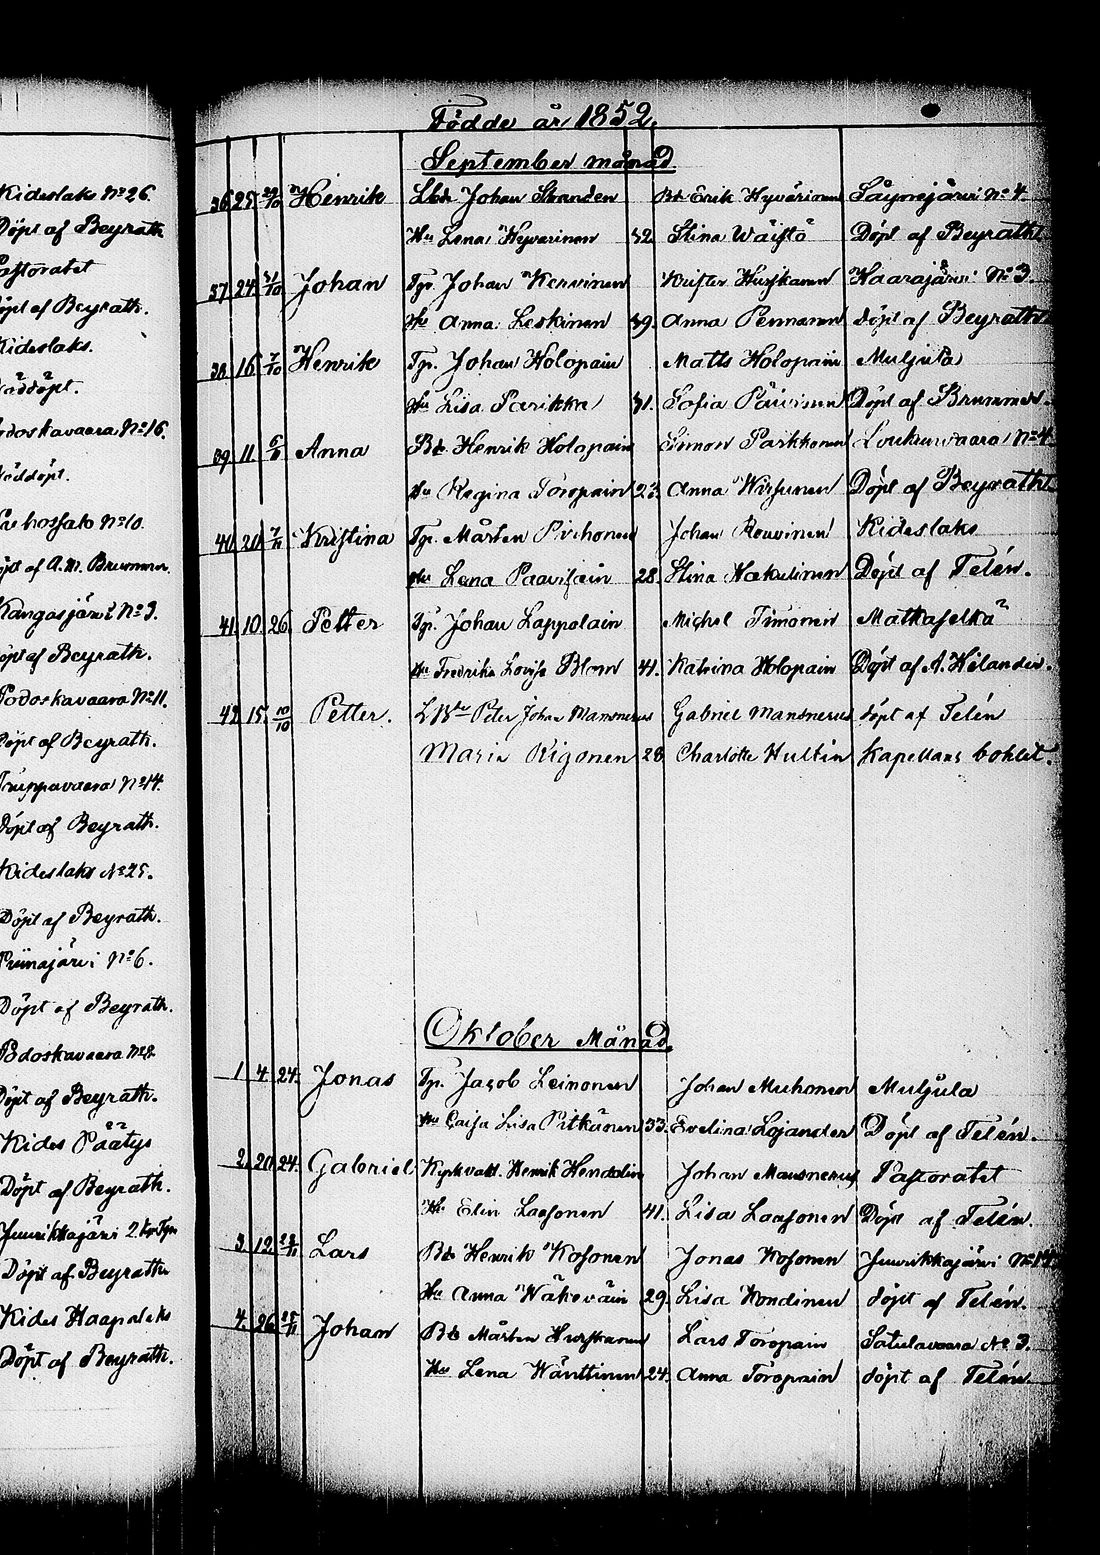 Kideslaks No 26.
Döpt af Beyrath
Pastoratet
Döpt af Beyrath.
Kideslaks.
Nöddöpt.
Podoskavaara No 16.
Nöddöpt.
No 10.
Döpt af A. M. Brummer.
Kangasjärvi No 3.
Döpt af Beyrath.
Podoskavaara No 11.
Döpt af Beyrath.
Truppavaara No 14.
Döpt af Beyrath.
Kideslaks No 25.
Döpt af Beyrath.
Piimajärvi No 6.
Döpt af Beyrath.
Podoskavaara No 2
Döpt af Beyrath.
Kides Päätys
Döpt af Beyrath.
Juurikkajärvi 2
Döpt af Beyrath
Kides
Döpt af Beyrath.
Födde år 1852.
September månad
36 25 Henrik Johan Stranden Bd Erik Hyvärinen No 4.
Hu Lena Hyvarinen 32. Stina Döpt af Beyrath.
37 24 Johan Tp. Johan Kervinen Krister Hurskanen Haarajärvi No 3.
Hu Anna Leskinen 39. Anna Pennanen döpt af Beyrath
38 16 7/10 Henrik Tp. Johan Holopain Matts Holopain Muljula
Hu Lisa Parikka 31. Sofia Döpt af Brummer.
39 11. Anna Bd Henrik Holopain Simon Parkkonen No 4
Hu Regina Toropain 23. Anna Döpt af Beyrath
40 20 Kristina Tp. Mårten Pirhonen Johan Rouvinen Kideslaks
Hu Lena 28. Stina Döpt af Telén.
41. 10 26 Petter Tp. Johan Lappalain Michel Timonen Matkaselkä
Hu Fredrika Lovisa Blom 41. Katrina Holopain Döpt af A. Helander.
42 15 10/10 Petter. Peter Johan Mansnerus Gabriel Mansnerus döpt af Telén
Maria Rigonen 28 Charlotte Hultin Kapellans bohlet.
Oktober Månad.
1 4 24. Jonas Tp. Jacob Leinonen Johan Muhonen Muljula
Hu Caisa Lisa Pitkänen 33. Evelina Lojander Döpt af Telén.
2. 20 24. Gabriel Kyrkvakt. Henrik Hendolin Johan Mansnerus Pastoratet
Hu Elin Laasonen 41. Lisa Laasonen Döpt af Telén.
3. 12 Lars Bd Henrik Kosonen Jonas Kosonen Juurikkajärvi
Hu Anna Wäkeväin 29. Lisa Kondinen döpt af Telén.
4. 26 Johan Bd Mårten Hurskanen Lars Toropain Satulavaara No 3.
Hu Lena Wänttinen 24. Anna Toropain döpt af Telén.